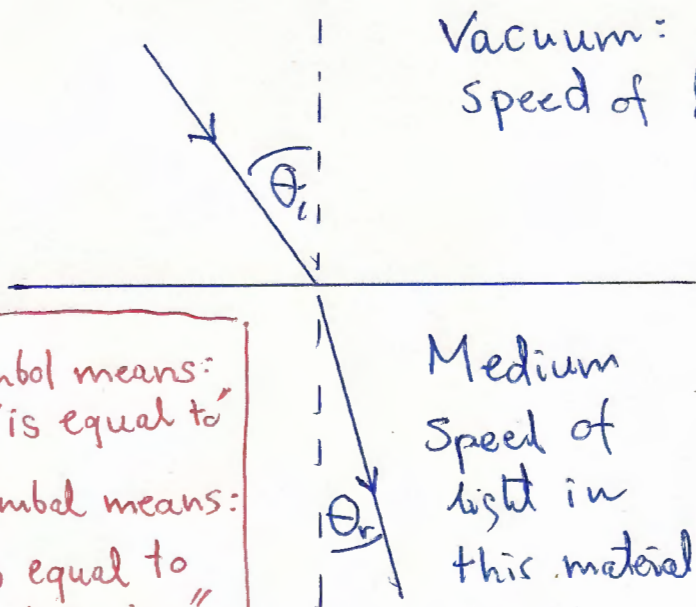 Vacuum:
Speed of
θi
mbol means:
"is equal to"
mbol means:
equal to
Medium
Speed of
light in
this material
θr